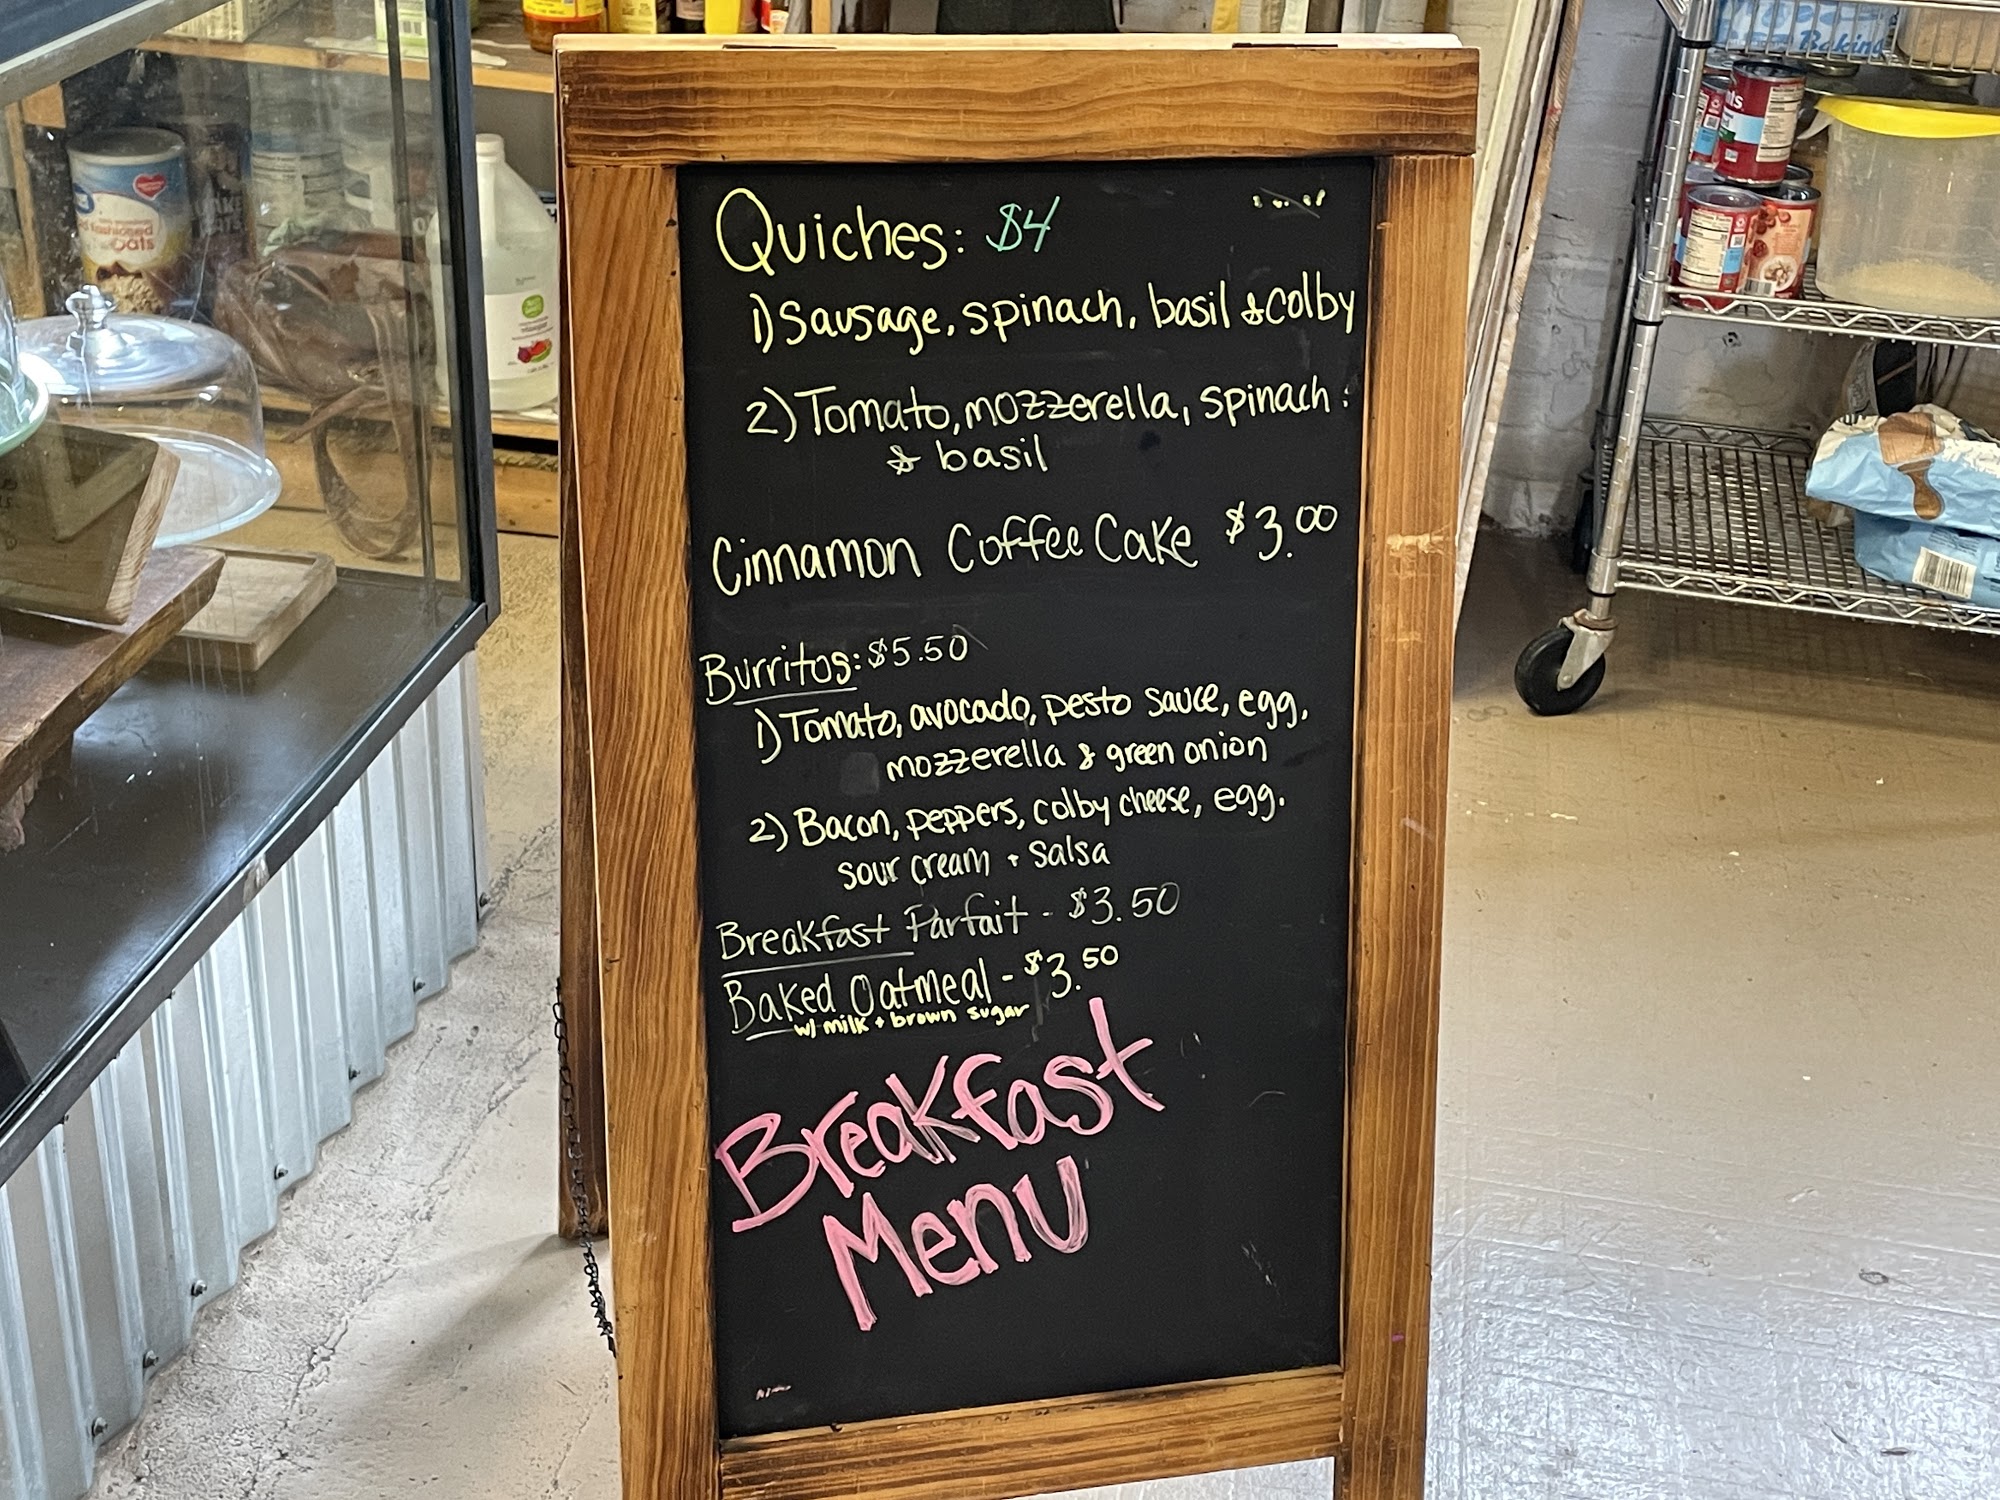 Quiches: $4
1) Sausage, spinach, basil & colby
2) Tomato, mozzerella, spinach
& basil
Cinnamon Coffee Cake $3.00
Burritos: $5.50
1) Tomato, avocado, pesto sauce, egg,
mozzerella & green onion
2) Bacon, peppers, colby cheese, egg,
sour cream + salsa
Breakfast Parfait - $3.50
Baked Oatmeal - $3.50
w/ milk + brown sugar
Breakfast
Menu
fashioned
Oats
Baking